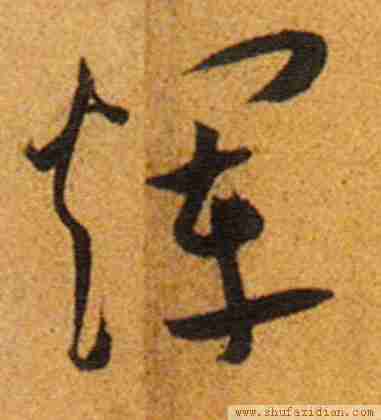 輝
www.shufazidian.com